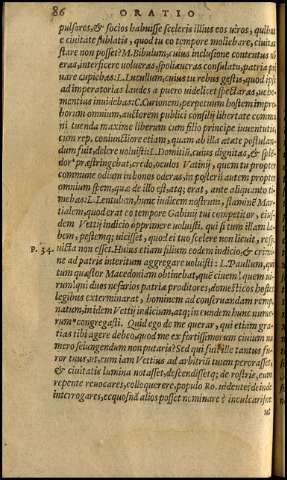 86 ORATIO
pulsares, & socios habuisse sceleris illius eos uiros, quibus
è ciuitate sublatis, quod tu eo tempore moliebare, ciuitas
stare non posset? M. Bibulum, cuius inclusione contentus nõ
eras, interficere uolueras, spoliaueras consulatu, patria pri
uare cupiebas: L. Lucullum, cuius tu rebus gestis, quod ipse
ad imperatorias laudes à puero uidelicet spectaras, uehe
mentius inuidebas: C. Curionem, perpetuum hostem impro
borum omnium, auctorem publici consilij libertate commu
ni tuenda maxime liberum cum filio principe iuuentutis,
cum rep. coniunctiore etiam, quàm ab illa ætate postulan
dum fuit, delere uoluisti: L. Domitiũ, cuius dignitas, & splẽ
dor præstringebat, credo, oculos Vatinij, quem tu propter
commune odium in bonos oderas, in posterũ autem propter
omnium spem, quæ de illo est, atq; erat, ante aliquanto ti
mebas: L. Lentulum, hunc iudicem nostrum, flaminẽ Mar
tialem, quod erat eo tempore Gabinij tui competitor, eius
dem Vettij indicio opprimere uoluisti. qui si tum illam la
bem, pestemq; uicisset, quod ei tuo scelere non licuit, resp.
P. 34. uicta non esset. Huius etiam filium eodem indicio, & crimi
ne ad patris interitum aggregare uoluisti: L. Paullum, qui
tum quæstor Macedoniam obtinebat, quẽ ciuem! quem ui
rum! qui duos nefarios patriæ proditores, domesticos hostes
legibus exterminarat, hominem ad conseruandam remp.
natum, in idem Vettij indicium, atq; in eundem hunc nume
rum congregasti. Quid ego de me querar, qui etiam gra
tias tibi agere debeo, quod me ex fortissimorum ciuium nu
mero seiungendum non putaris? Sed qui fuit ille tantus fu
ror tuus, ut, cum iam Vettius ad arbitriũ tuum perorasset,
& ciuitatis lumina notasset, descendissetq; de rostris, eum
repente reuocares, colloquerere, populo Ro. uidente: deinde
interrogares, ecquosnã alios posset nominare? inculcarisne
ut